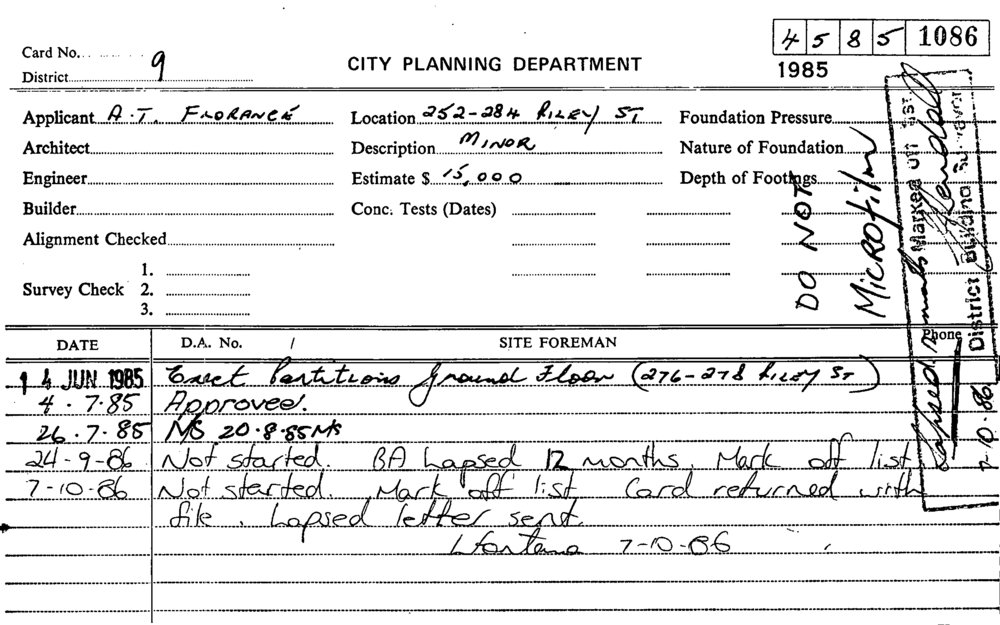 4 5 8 5 1086
1985
Card No.
District 9
CITY PLANNING DEPARTMENT
Applicant A.T. FLORANCE
Location 252-284 RILEY ST
Foundation Pressure
Architect
Description MINOR
Nature of Foundation
Engineer
Estimate $ 15,000
Depth of Footings
Builder
Conc. Tests (Dates)
Alignment Checked
Survey Check
1.
2.
3.
DO NOT
MICROfilm
Lapsed 12 months Marked off list
District Building Surveyor
7-10-86
DATE D.A. No. / SITE FOREMAN Phone
14 JUN 1985 Erect Partitions Ground Floor (276-278 RILEY ST)
4.7.85 Approved.
26.7.85 NS 20.8.85 NS
24-9-86 Not started. BA Lapsed 12 months. Mark off list
7-10-86 Not started. Mark off list Card returned with
file. Lapsed letter sent.
7-10-86